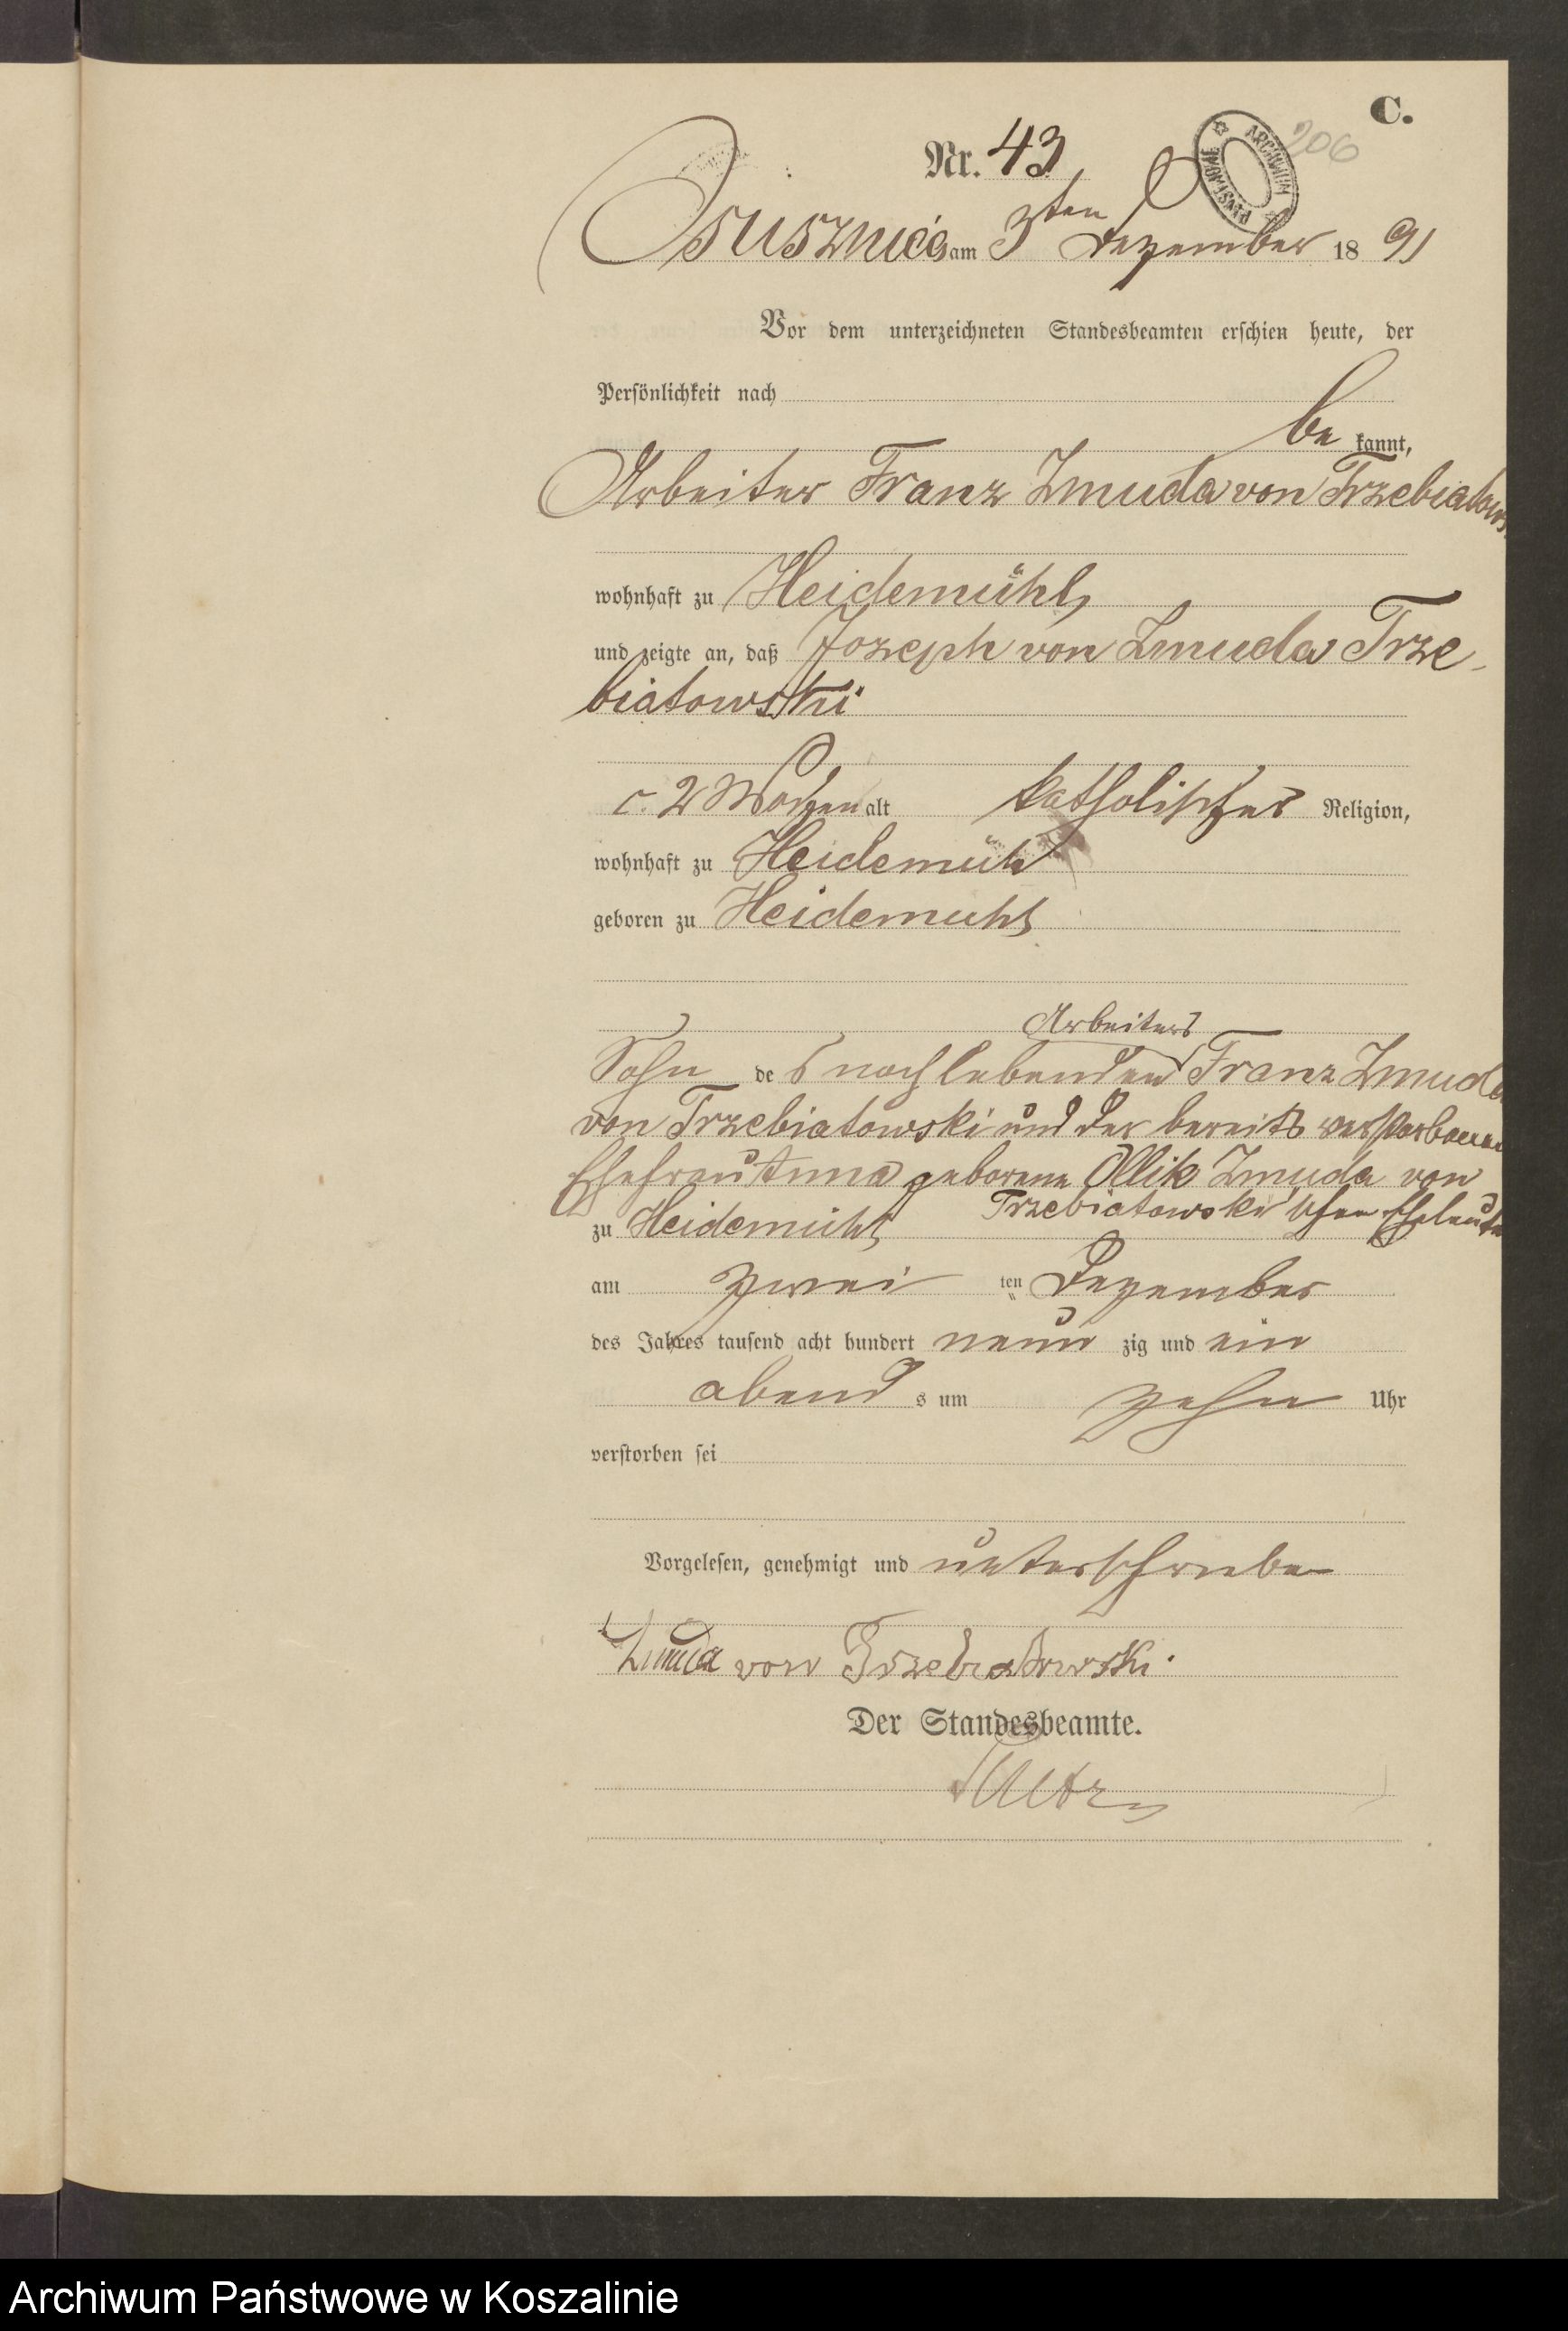 C.
206
Nr. 43
ARCHIWUM PAŃSTWOWE
Ossusznica am 3ten Dezember 1891
Vor dem unterzeichneten Standesbeamten erschien heute, der
Persönlichkeit nach
be kannt,
Arbeiter Franz Zmuda von Trzebiatows
wohnhaft zu Heidemühl,
und zeigte an, daß Joseph von Zmuda Trze-
biatowski
c. 2 Wochen alt katholischer Religion,
wohnhaft zu Heidemühl
geboren zu Heidemuhl
Arbeiters
Sohn des noch lebenden Franz Zmuda
von Trzebiatowski und der bereits verstorbenen
Ehefrau Anna geborene Ollik Zmuda von
Trzebiatowski'schen Eheleute
zu Heidemühl
am zwei ten Dezember
des Jahres tausend acht hundert neun zig und ein
abend s um zehn Uhr
verstorben sei
Vorgelesen, genehmigt und unterschrieben
Zmuda von Trzebiatowski.
Der Standesbeamte.
Archiwum Państwowe w Koszalinie